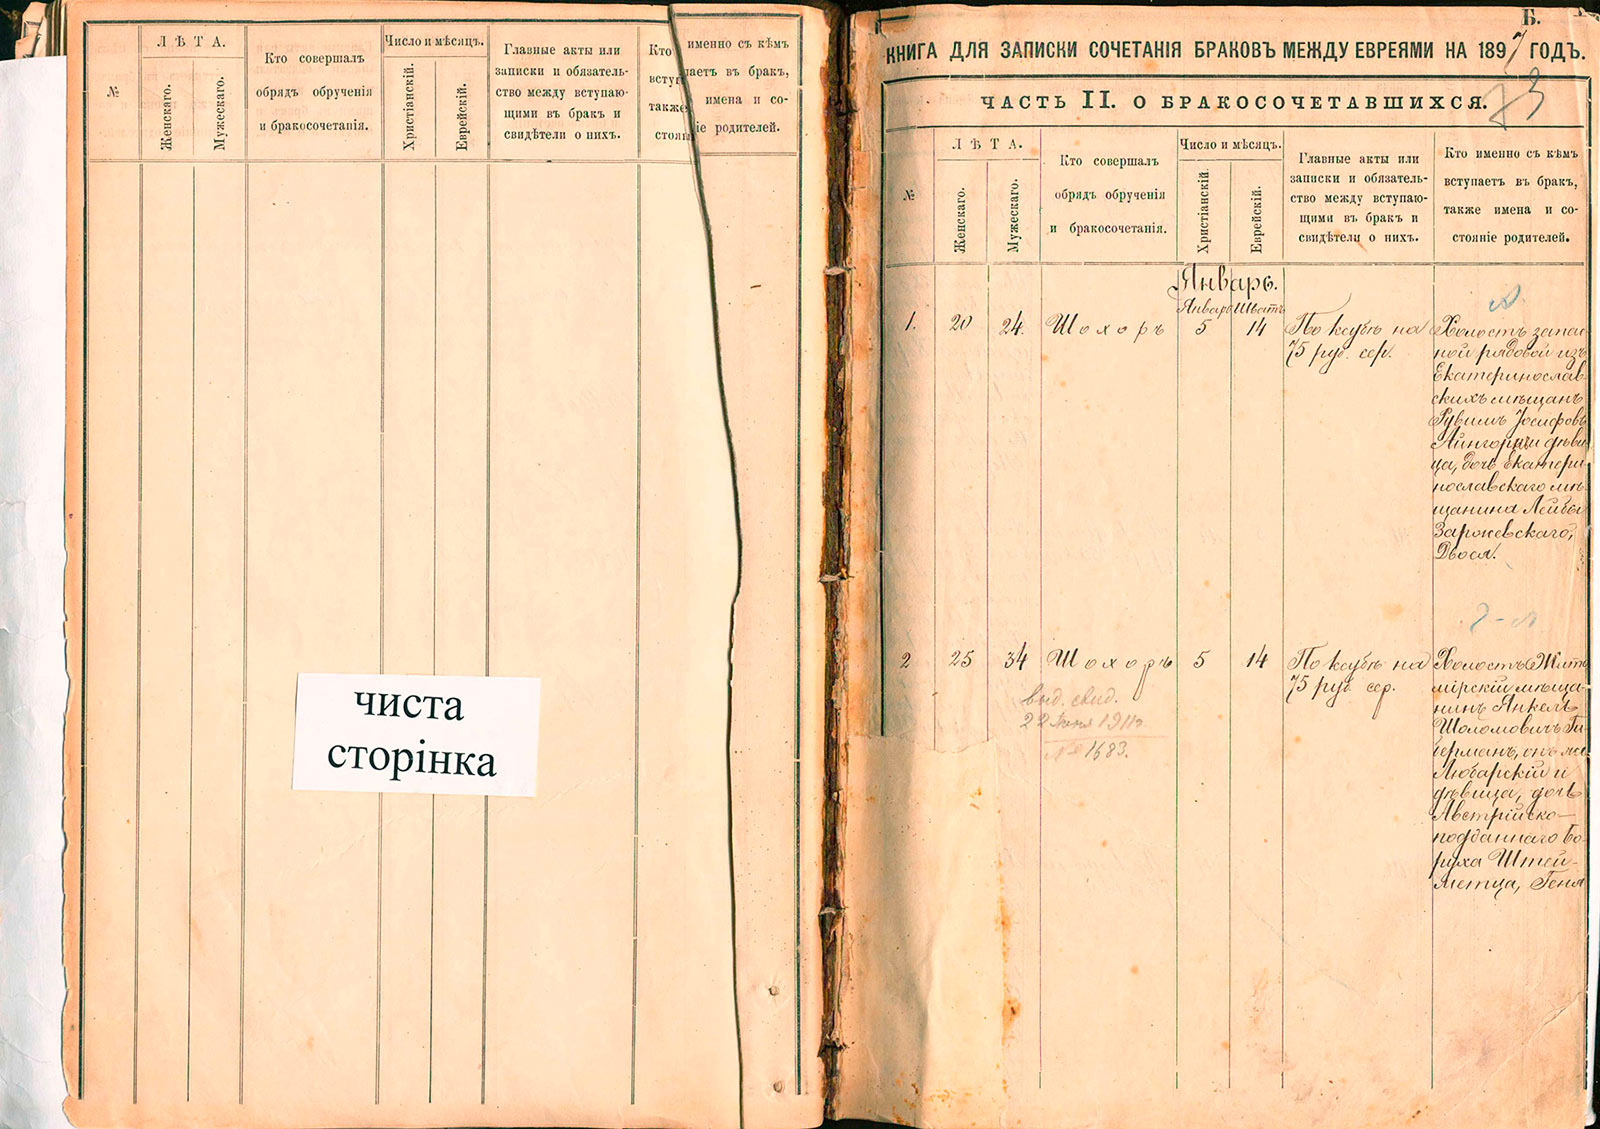 №
ЛѢТА.
Женскаго.
Мужескаго.
Кто совершалъ
обрядъ обрученія
и бракосочетанія.
Число и мѣсяцъ.
Христіанскій.
Еврейскій.
Главные акты или
записки и обязатель-
ство между вступаю-
щими въ бракъ и
свидѣтели о нихъ.
Кто именно съ кѣмъ
вступаетъ въ бракъ,
также имена и со-
стояніе родителей.
чиста
сторінка
Б.
КНИГА ДЛЯ ЗАПИСКИ СОЧЕТАНІЯ БРАКОВЪ МЕЖДУ ЕВРЕЯМИ НА 1897 ГОДЪ.
ЧАСТЬ II. О БРАКОСОЧЕТАВШИХСЯ.
73
№
ЛѢТА.
Женскаго.
Мужескаго.
Кто совершалъ
обрядъ обрученія
и бракосочетанія.
Число и мѣсяцъ.
Христіанскій.
Еврейскій.
Главные акты или
записки и обязатель-
ство между вступаю-
щими въ бракъ и
свидѣтели о нихъ.
Кто именно съ кѣмъ
вступаетъ въ бракъ,
также имена и со-
стояніе родителей.
Январь.
Январь Шватъ
1. 20 24. Шохоръ 5 14
По ксубѣ на
75 руб. сер.
Холостъ запас-
ной рядовой изъ
Екатеринослав-
скихъ мѣщанъ
Рувимъ Іосифовъ
и дѣви-
ца, дочь Екатери-
нославскаго мѣ-
щанина Лейбы
Заржевскаго,
Двося.
2 25 34 Шохоръ 5 14
По ксубѣ на
75 руб. сер.
выд. свид.
22 Іюня 1911г.
№ 1683.
Холостъ Жито-
мірскій мѣща-
нинъ Янкель
Шоломовичъ Ги-
берманъ, онъ же
Любарскій и
дѣвица, дочь
Австрійско-
подданнаго Бо-
руха Штей-
метца, Геня